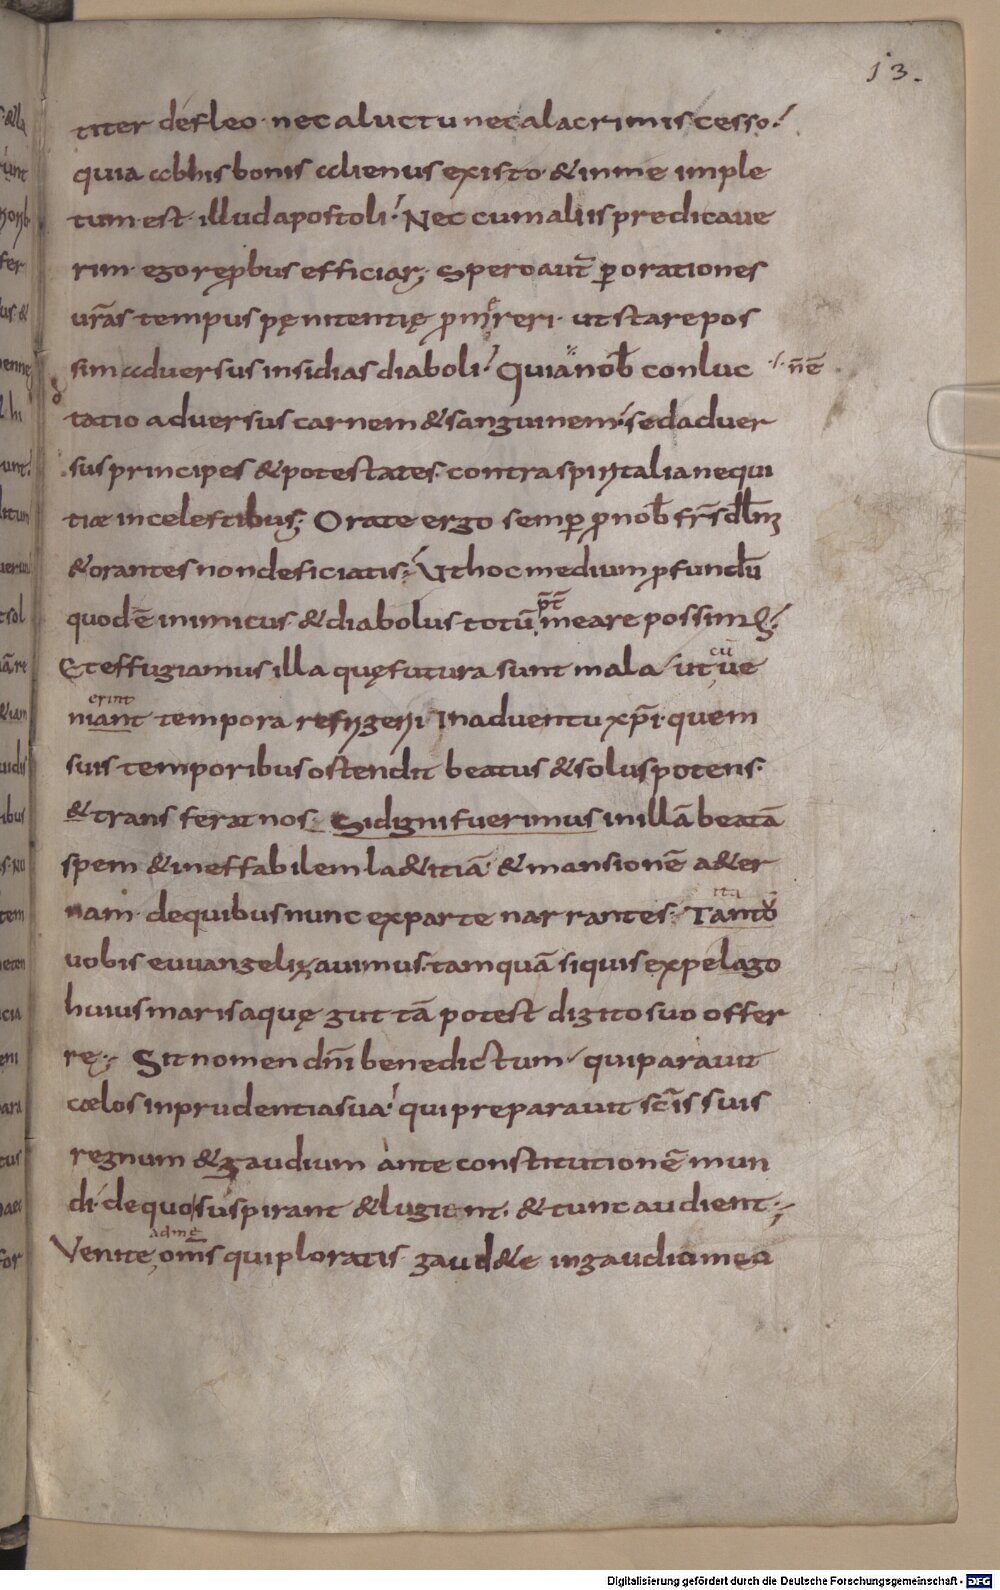 13.
titer defleo· nec a luctu nec a lacrimis cesso·
quia ab his bonis alienus existo· & in me imple
tum est· illud apostoli· Nec cum aliis predicaue
rim· ego rep̄bus efficiar; Spero aut̄ ꝑ orationes
ur̄as tempus pęnitentię ꝓmereri· ut stare pos
sim aduersus insidias diaboli· Quia nob̄ conluc ·/· n̄ ē
tatio aduersus carnem & sanguinem· sed aduer
sus principes & potestates· contra spiritalia nequi
tiæ in celestibus; Orate ergo semper ꝓ nob̄ fr̄s
& orantes non deficiatis; Ut hoc medium profundū
quod ē inimicus & diabolus totū p̄t meare possim;
Et effugiamus illa quę futura sunt mala· ut cū ue
niant erint tempora refrigerii In aduentu xp̄i· quem
suis temporibus ostendit beatus & solus potens·
& transferat nos· Si digni fuerimus in illā beatā
spem & ineffabilem læ&itiā· & mansionē a&er
nam· de quibus nunc ex parte narrantes· ita Tanto
uobis euuangelizauimus· tamquā si quis ex pelago
huius maris aquę guttā potest digito suo offer
rę; Sit nomen dn̄i benedictum· qui parauit
cœlos in prudentia sua· qui preparauit sc̄is suis
regnum & gaudium ante constitutionē mun
di· de quo suspirant & lugent· & tunc audient;
Venite ad me om̄s qui ploratis· gaud&e in gaudio meo
Digitalisierung gefördert durch die Deutsche Forschungsgemeinschaft - DFG